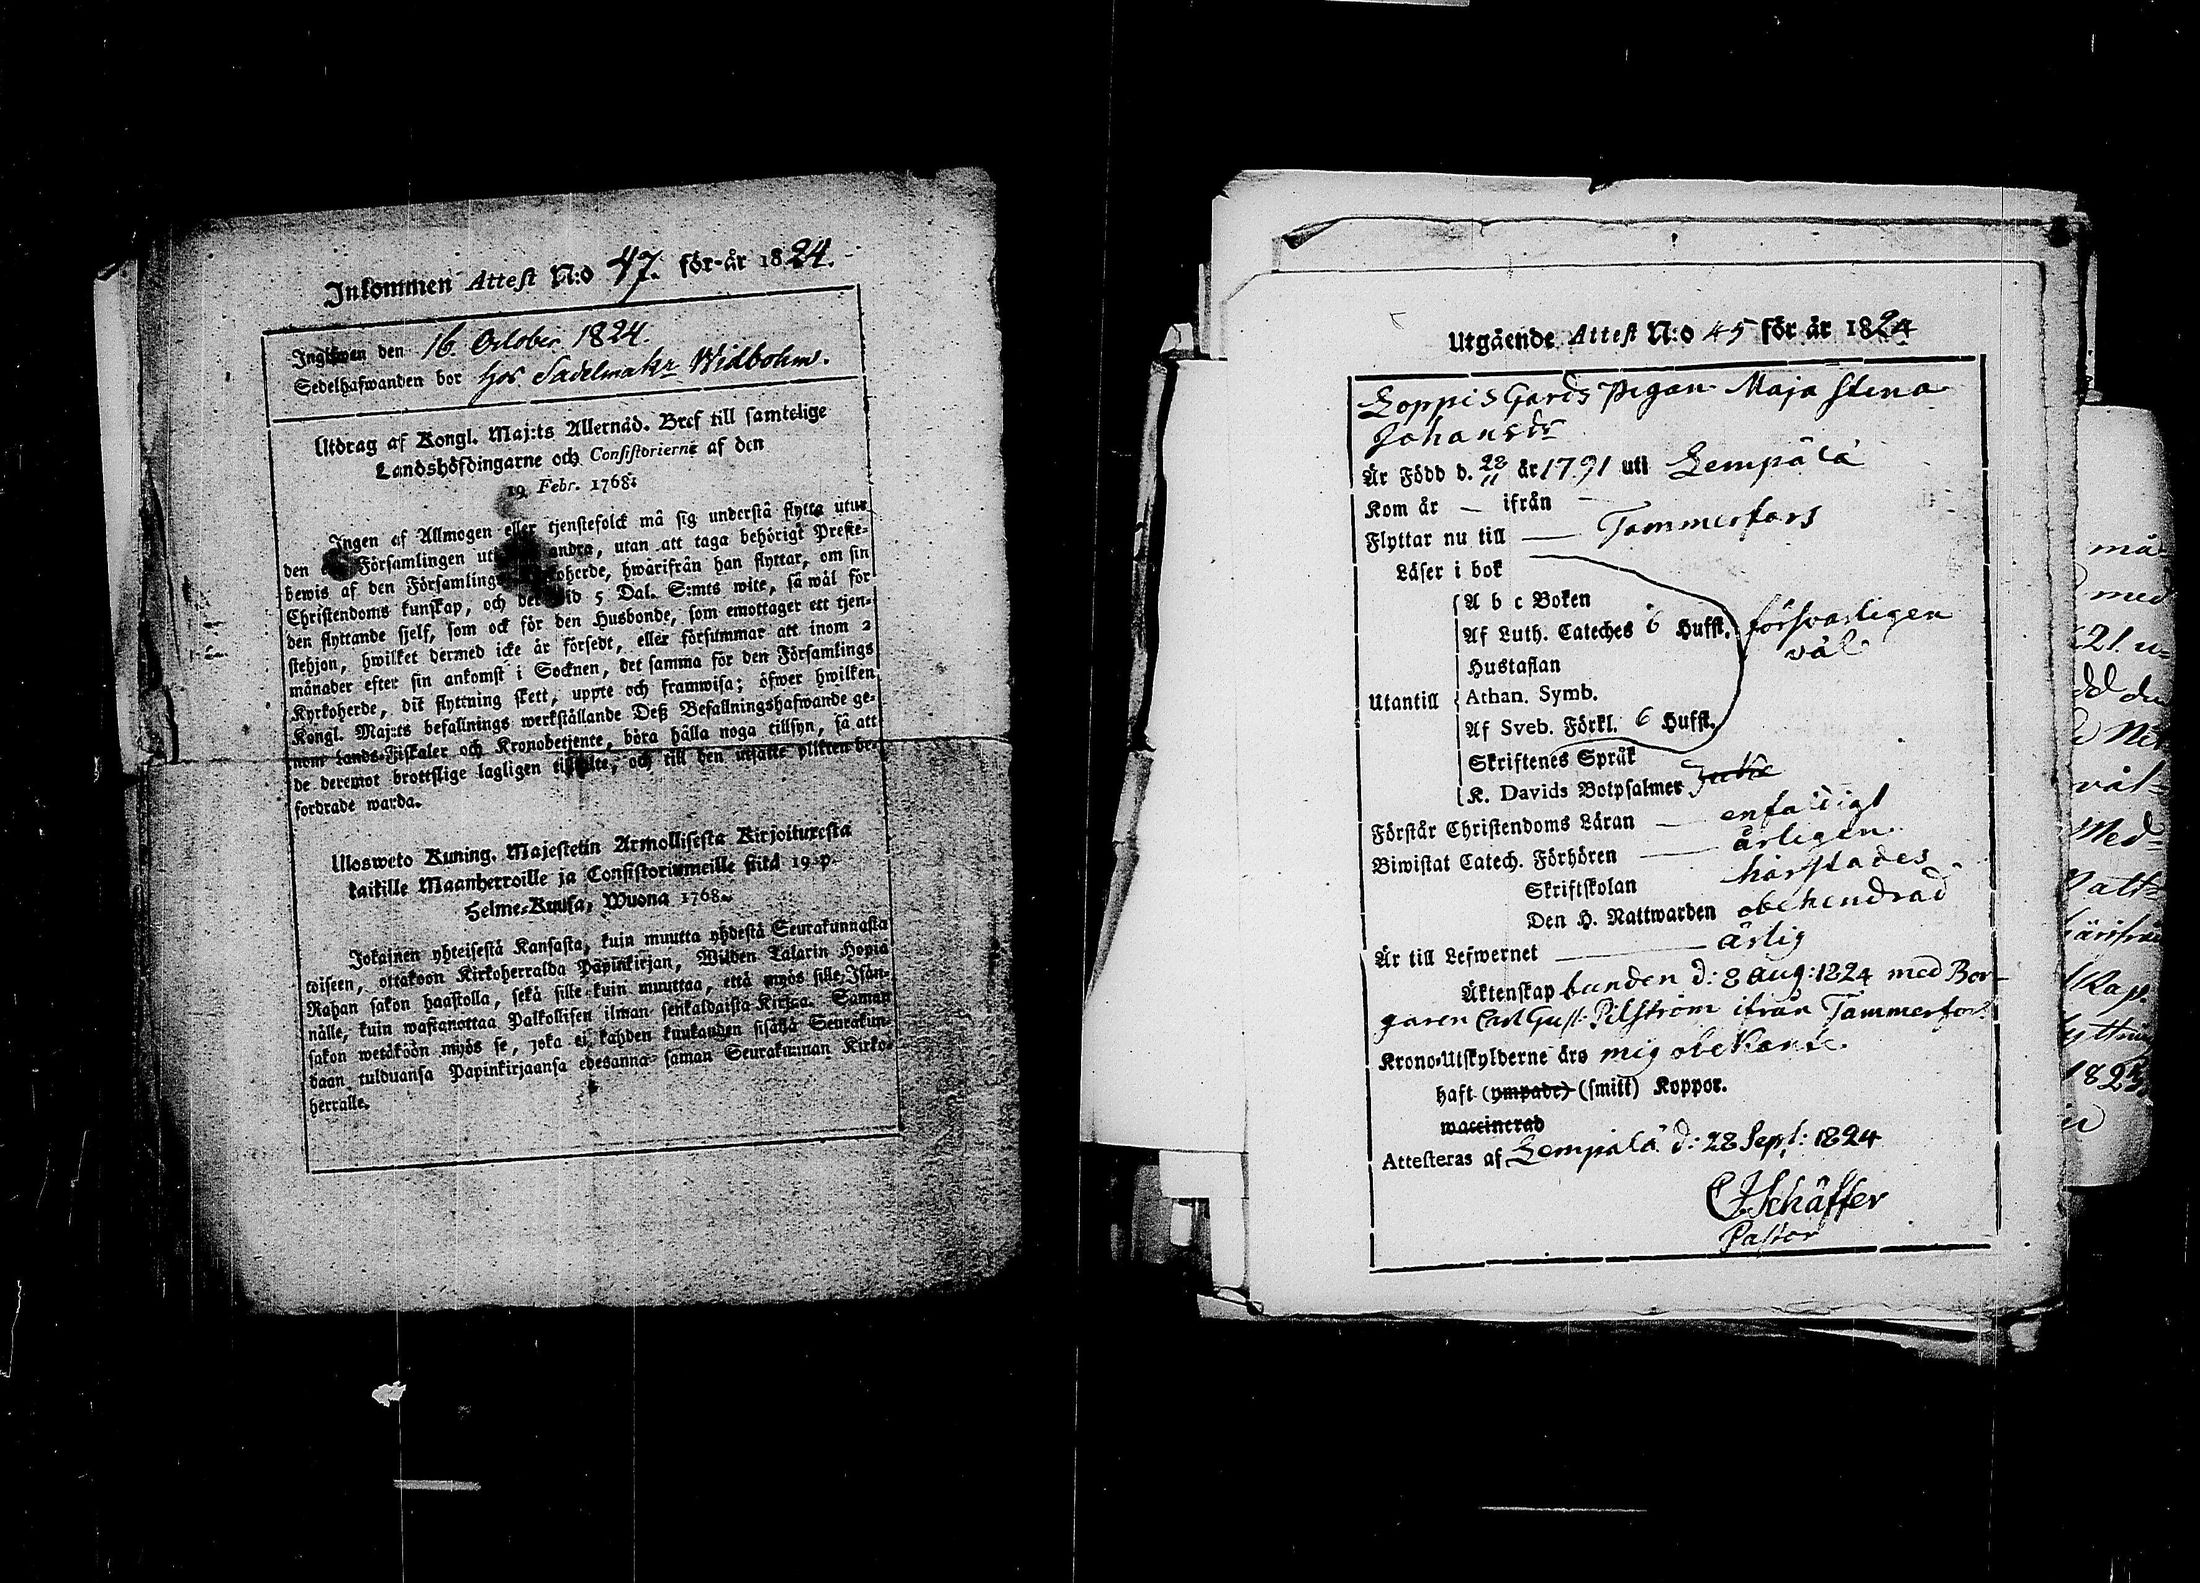 Inkommen Attest N:o 47. för år 1824.
Ingifwen den 16. October 1824.
Sedelhafwanden bor hos Sadelmakr Widbohm.
Utdrag af Kongl. Maj:ts Allernåd. Bref till samtelige
Landshöfdingarne och Consistorierne af den
19 Febr. 1768:
Ingen af Allmogen eller tjenstefolck må sig understå flytta utur
den Församlingen uti andra, utan att taga behörigt Preste-
bewis af den Församlings herde, hwarifrån han flyttar, om sin
Christendoms kunskap, och det wid 5 Dal. S:mts wite, så wäl för
den flyttande sjelf, som ock för den Husbonde, som emottager ett tjen-
stehjon, hwilket dermed icke är försedt, eller försummar att inom 2
månader efter sin ankomst i Socknen, det samma för den Församlings
Kyrkoherde, dit flyttning skett, uppte och framwisa; öfwer hwilken
Kongl. Maj:ts befallnings werkställande Deß Befallningshafwande ge-
nom Lands-Fiskaler och Kronobetjente, böra hålla noga tillsyn, så att
de deremot brottslige lagligen tiltalte, och till den utsatte plikten be-
fordrade warda.
Ulosweto Kuning. Majestetin Armollisesta Kirjoituxesta
kaikille Maanherroille ja Consistoriumeille siitä 19 p.
Helme-Kuusa, Wuona 1768.
Jokainen yhteisestä Kansasta, kuin muutta yhdestä Seurakunnasta
toiseen, ottakoon Kirkoherralda Papinkirjan, Wiiden Talarin Hopia
Rahan sakon haastolla, sekä sille kuin muuttaa, että myös sille Isän-
nälle, kuin wastanottaa Palkollisen ilman senkaldaista Kirjaa. Saman
sakon wetäköön myös se, joka ei kahden kuukauden sisällä Seurakun-
daan tulduansa Papinkirjaansa edesanna saman Seurakunnan Kirko-
herralle.
Utgående Attest N:o 45 för år 1824
Loppis Gards Pigan Maja Stina
Johansdr
Är Född d. 28/11 år 1791 uti Lempälä
Kom år — ifrån —
Flyttar nu till — Tammerfors
Läser i bok
A b c Boken
Af Luth. Cateches 6 Hufst. försvarligen
väl
Hustaflan
Utantill Athan. Symb.
Af Sveb. Förkl. 6 Hufst.
Skriftenes Språk
K. Davids Botpsalmer
Förstår Christendoms Läran — enfaldigt
Biwistat Catech. Förhören — årligen
Skriftskolan härstädes
Den H. Nattwarden obehindrad
Är till Lefwernet — ärlig
Äktenskap bunden d: 8 Aug: 1824 med Bor-
garen Carl Gust. Pilström ifrån Tammerfors
Krono-Utskylderne äro mig obekante.
haft (ympade) (smitt) Koppor.
waccinerad
Attesteras af Lempälä d: 28 Sept: 1824
CJSchäffer
Pastor